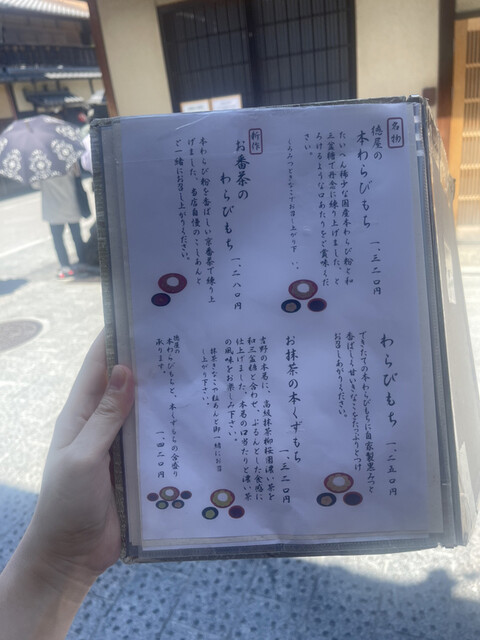 名物
徳屋の
本わらびもち 一、三二〇円
たいへん稀少な国産本わらび粉と和
三盆糖で丹念に練り上げました。と
ろけるような口あたりをご賞味くだ
さい。
くろみつときなこでお召し上がり下
い。
新作
お番茶の
わらびもち 一、二八〇円
本わらび粉を香ばしい京番茶で練り上
げました。当店自慢のこしあんと
ど一緒にお召し上がりください。
わらびもち 一、二五〇円
できたての本わらびもちに自家製黒みつと
香ばしく甘いきなこをたっぷりとつけ
お召しあがりください。
お抹茶の本くずもち
一、三二〇円
吉野の本葛に、高級抹茶柳桜園濃い茶を
和三盆糖と合わせ、ぷるんとした食感に
仕上げました。本葛の口当たりと濃い茶
の風味をお楽しみ下さい。
抹茶きなこや粒あんと御一緒にお召
し上がり下さい。
徳屋の
本わらびもちと、本くずもちの合盛り
承ります。
一、〇二〇円